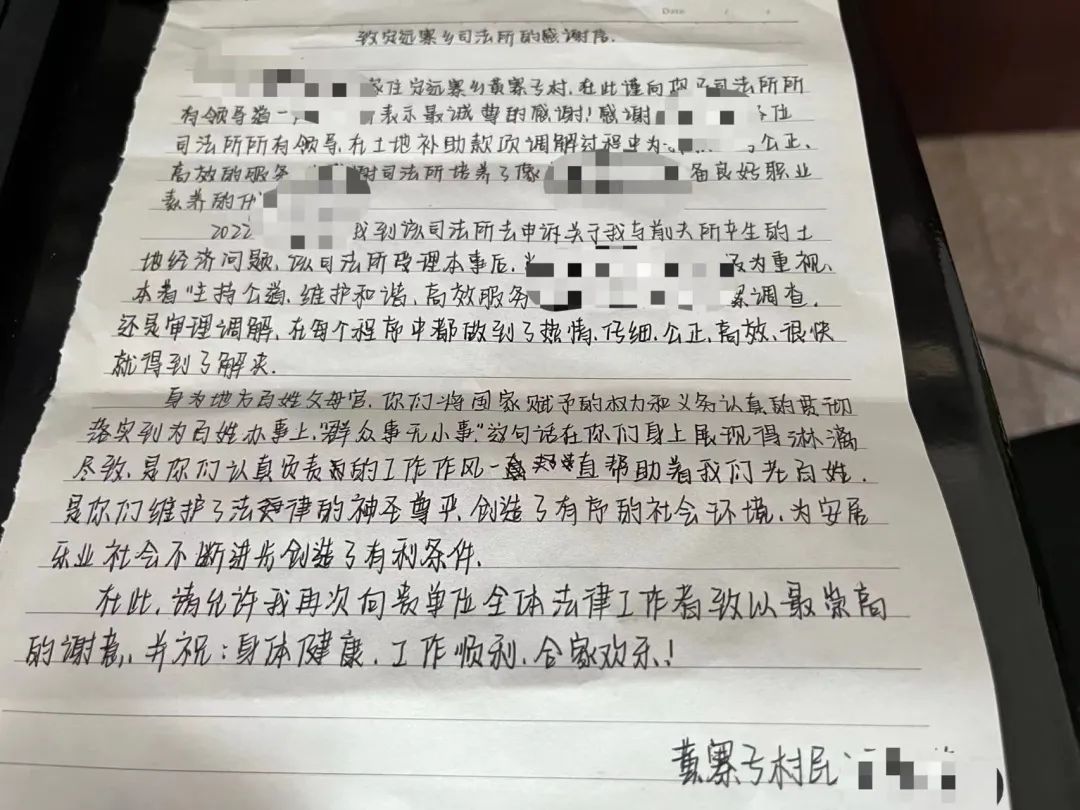 Date / /
致安远寨乡司法所的感谢信.
家住安远寨乡黄寨子村,在此谨向 司法所所
有领导道一 表示最诚尊的感谢!感谢 位
司法所所有领导,在土地补助款项调解过程中为 公正、
高效的服务 谢司法所培养了像 备良好职业
素养的
2022 我到该司法所去申诉关于我与前夫所产生的土
地经济问题,从司法所受理本事后, 极为重视,
本着"主持公道、维护和谐、高效服务 调查,
还是审理调解,在每个程序中都做到了热情、仔细、公正、高效、很快
就得到了解决.
身为地方百姓父母官,你们将国家赋予的权力和义务认真的贯彻
落实到为百姓办事上,"群众事无小事"这句话在你们身上展现得淋漓
尽致,是你们认真负责的工作作风一直帮助着我们老百姓,
是你们维护了法律的神圣尊严,创造了有序的社会环境,为安居
乐业社会不断进步创造了有利条件.
在此,请允许我再次向贵单位全体法律工作者致以最崇高
的谢意,并祝:身体健康,工作顺利,合家欢乐!
黄寨子村民